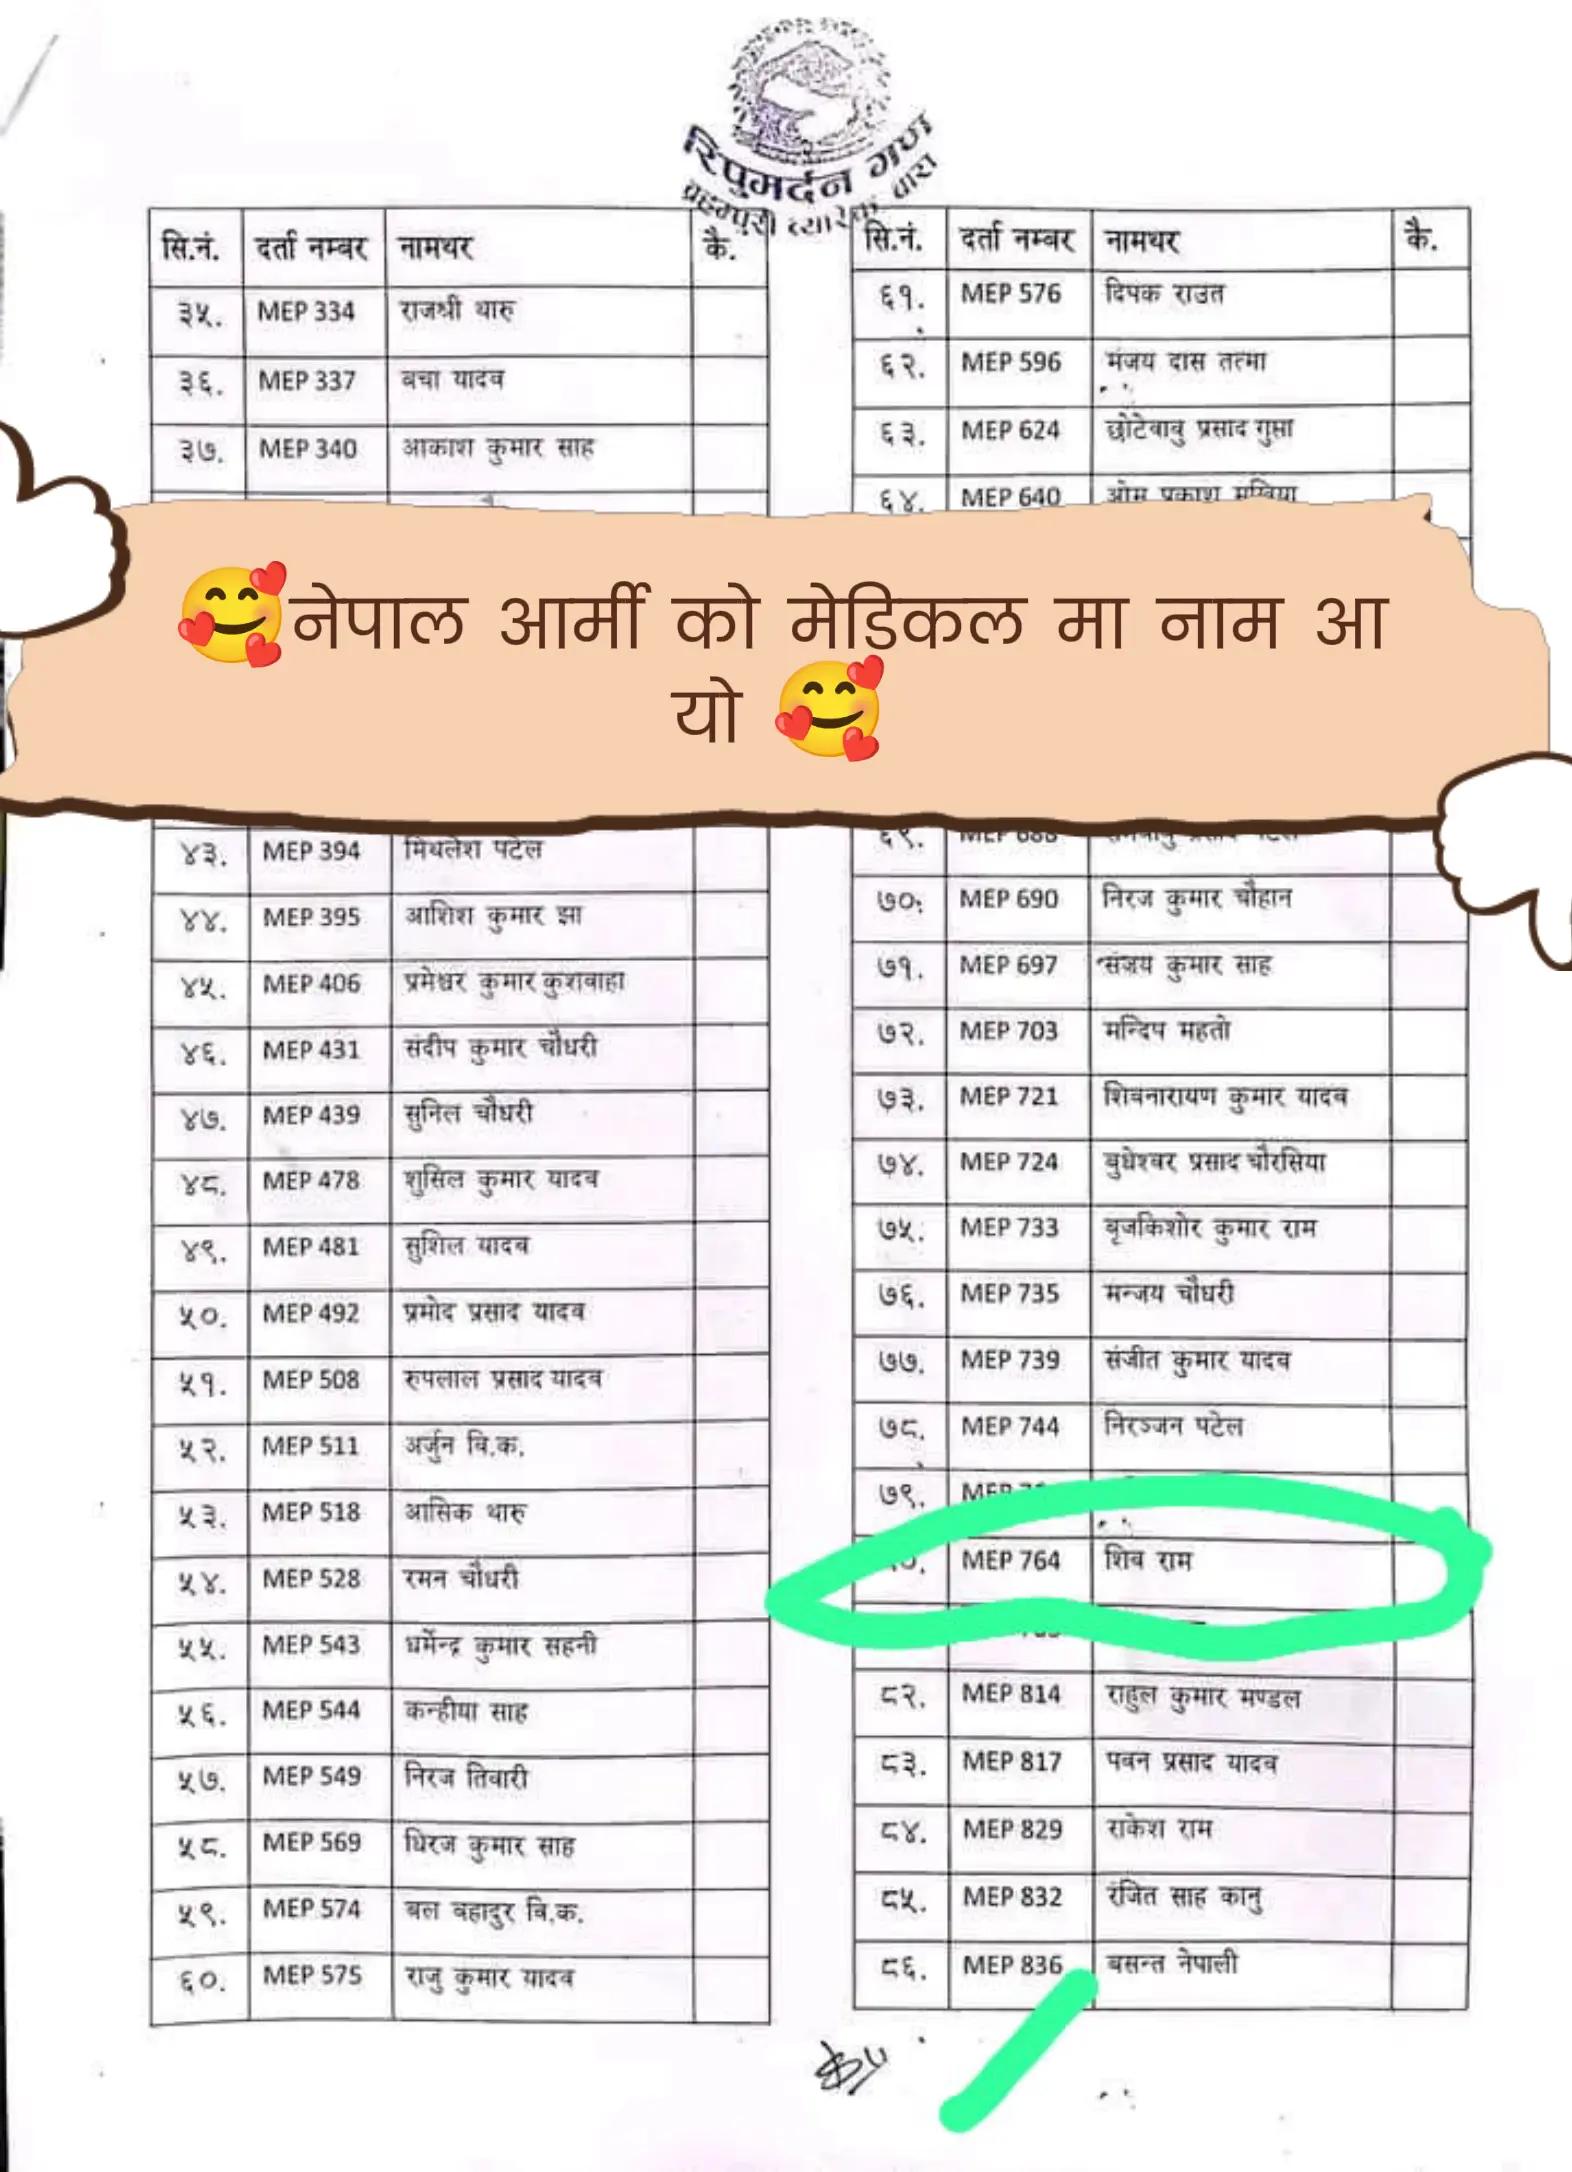 रिपुमर्दन गण
ब्रह्मपुरी ब्यारेक बारा
सि.नं. दर्ता नम्बर नामथर कै.
३५. MEP 334 राजश्री थारु
३६. MEP 337 बचा यादव
३७. MEP 340 आकाश कुमार साह
🥰नेपाल आर्मी को मेडिकल मा नाम आ
यो 🥰
४३. MEP 394 मिथलेश पटेल
४४. MEP 395 आशिश कुमार झा
४५. MEP 406 प्रमेश्वर कुमार कुशवाहा
४६. MEP 431 संदीप कुमार चौधरी
४७. MEP 439 सुनिल चौधरी
४८. MEP 478 शुसिल कुमार यादव
४९. MEP 481 सुशिल यादव
५०. MEP 492 प्रमोद प्रसाद यादव
५१. MEP 508 रुपलाल प्रसाद यादव
५२. MEP 511 अर्जुन वि.क.
५३. MEP 518 आसिक थारु
५४. MEP 528 रमन चौधरी
५५. MEP 543 धर्मेन्द्र कुमार सहनी
५६. MEP 544 कन्हीया साह
५७. MEP 549 निरज तिवारी
५८. MEP 569 धिरज कुमार साह
५९. MEP 574 बल बहादुर वि.क.
६०. MEP 575 राजु कुमार यादव
सि.नं. दर्ता नम्बर नामथर कै.
६१. MEP 576 दिपक राउत
६२. MEP 596 मंजय दास तत्मा
६३. MEP 624 छोटेबाबु प्रसाद गुप्ता
६४. MEP 640 ओम प्रकाश मुखिया
६९. MEP 688
७०. MEP 690 निरज कुमार चौहान
७१. MEP 697 संजय कुमार साह
७२. MEP 703 मन्दिप महतो
७३. MEP 721 शिवनारायण कुमार यादव
७४. MEP 724 बुधेश्वर प्रसाद चौरसिया
७५. MEP 733 बृजकिशोर कुमार राम
७६. MEP 735 मन्जय चौधरी
७७. MEP 739 संजीत कुमार यादव
७८. MEP 744 निरञ्जन पटेल
७९. MEP
MEP 764 शिव राम
८२. MEP 814 राहुल कुमार मण्डल
८३. MEP 817 पवन प्रसाद यादव
८४. MEP 829 राकेश राम
८५. MEP 832 रंजित साह कानु
८६. MEP 836 बसन्त नेपाली